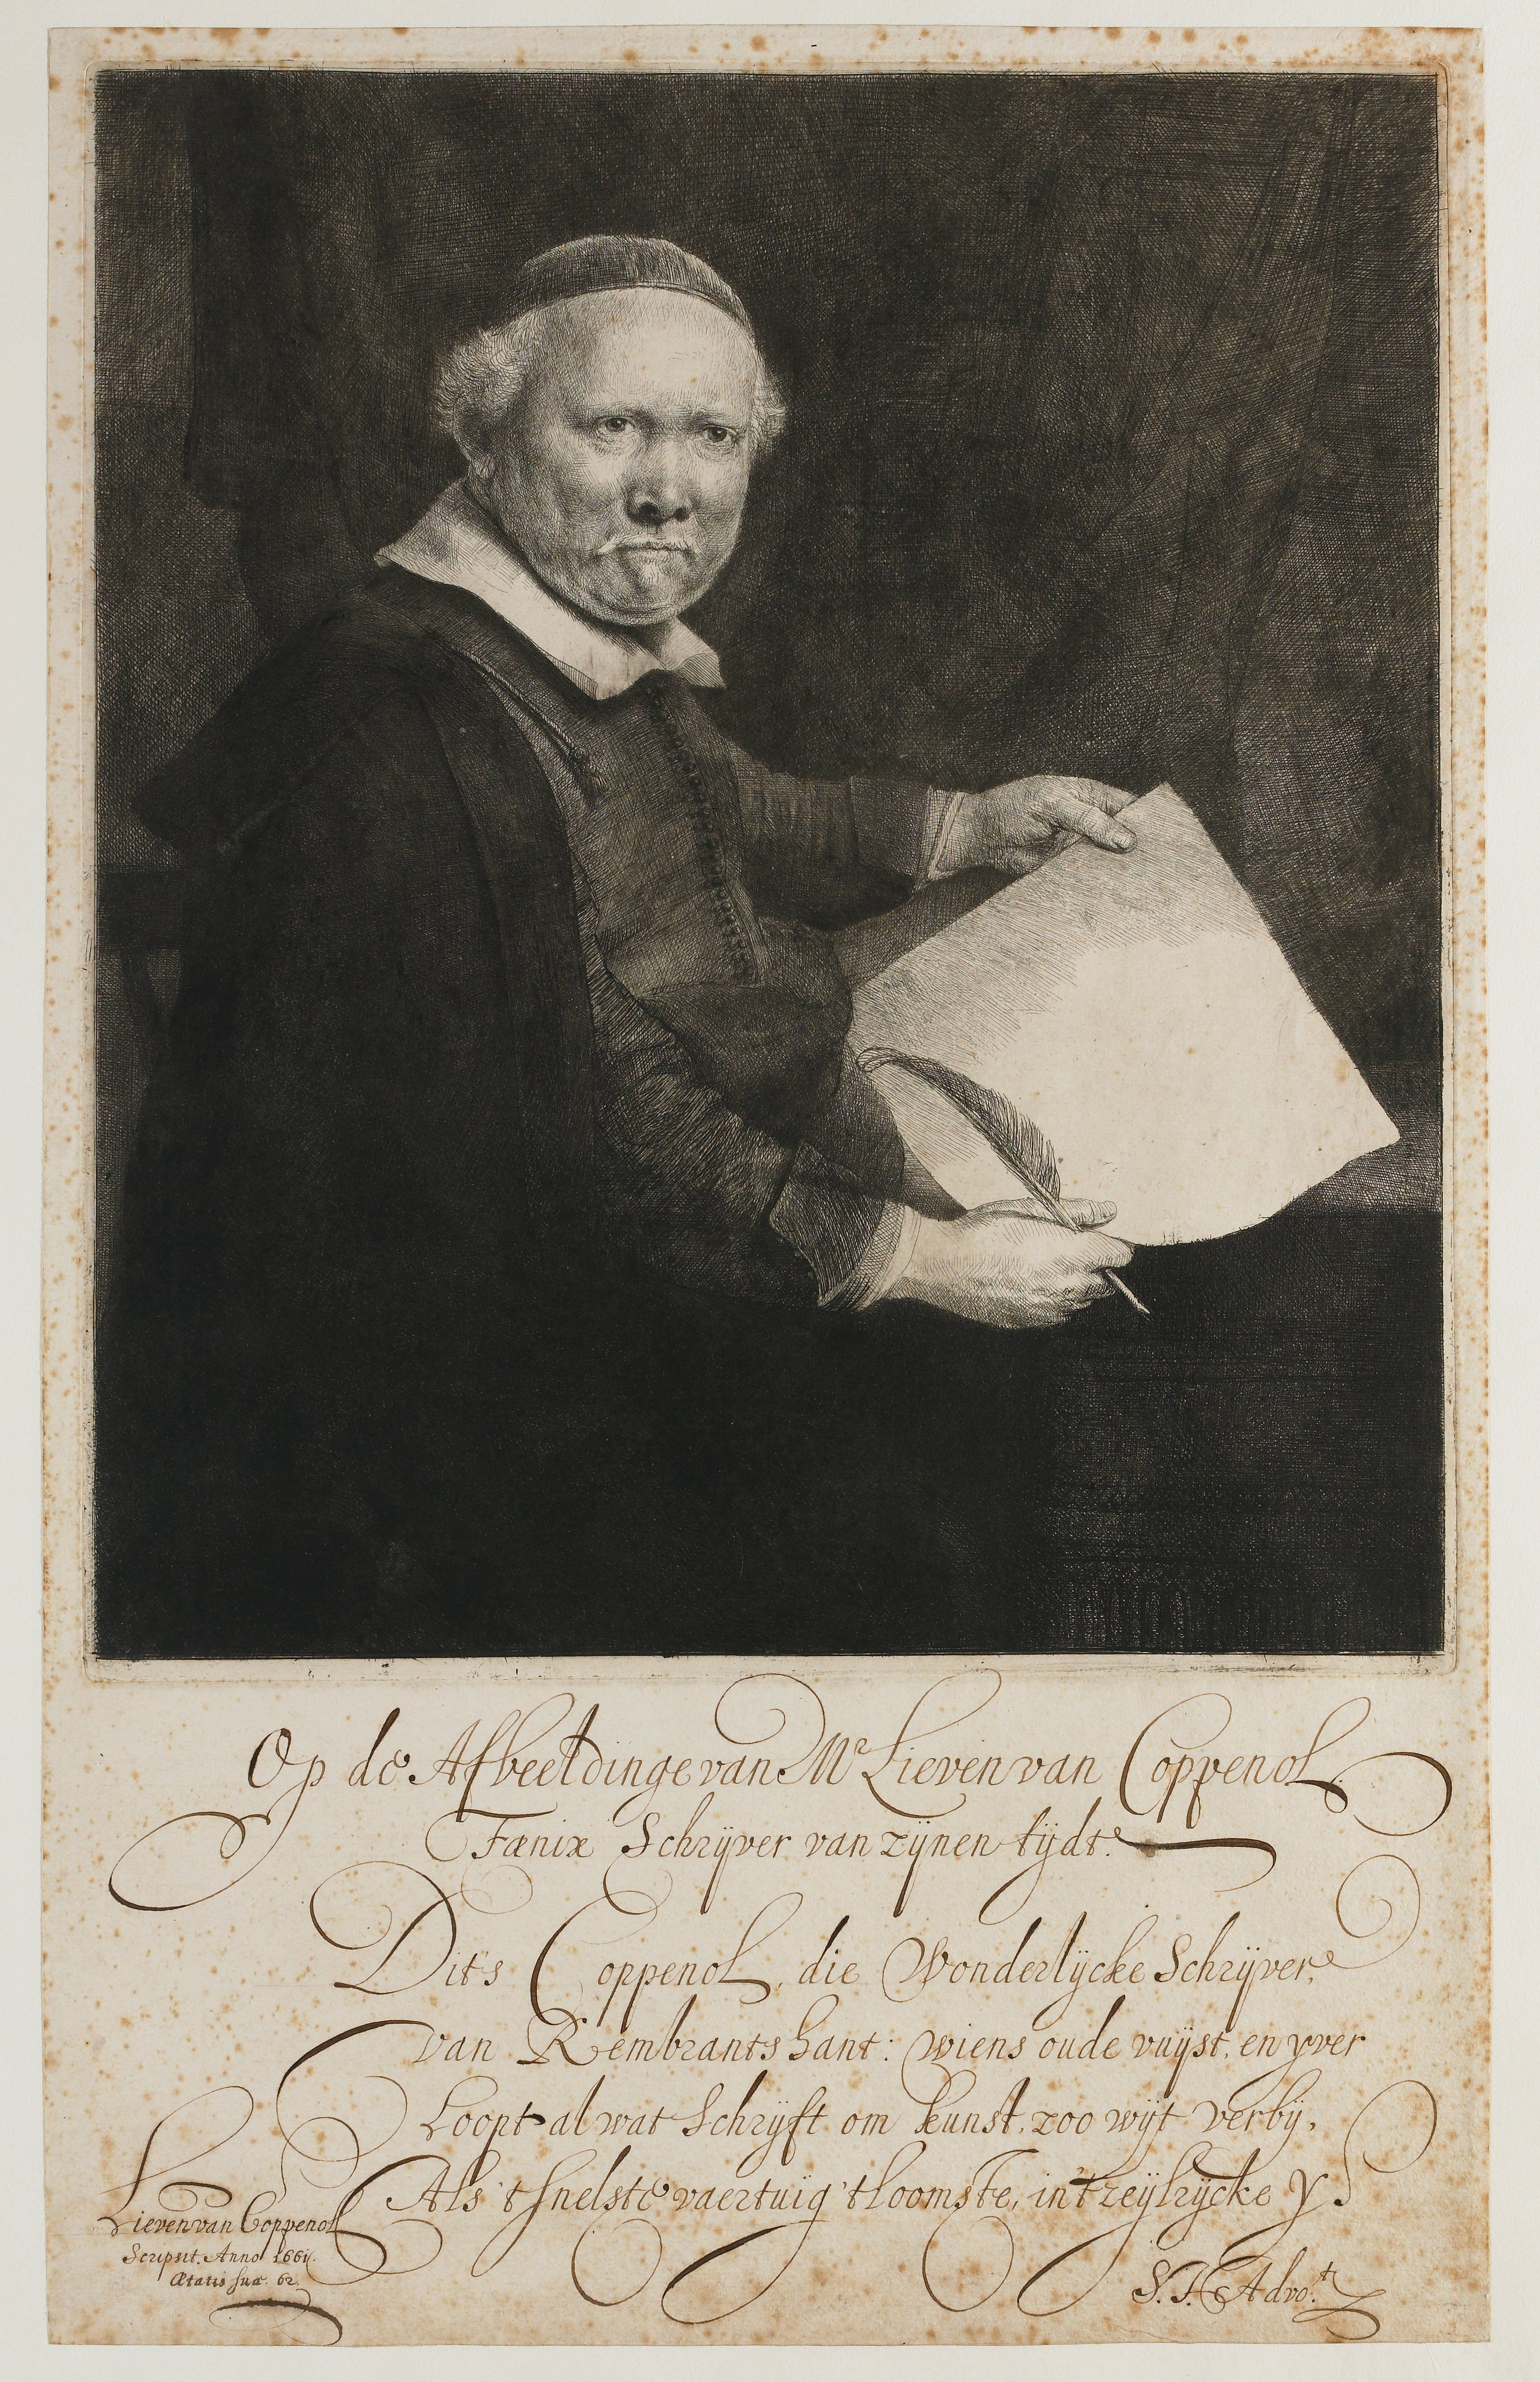 Op de Afbeeldinge van Mr Lieven van Coppenol.
Fænix Schrijver van zijnen tijdt.
Dit's Coppenol, die Wonderlijcke Schrijver,
van Rembrants hant: wiens oude vuijst, en yver
Loopt al wat Schrijft om kunst, zoo wijt verbij,
Als 't snelste vaertuig 't loomste, in 't zeijlrijcke y.
Lieven van Coppenol
Scripsit. Anno 1661.
Ætatis suæ. 62.
S. I. Advo.t